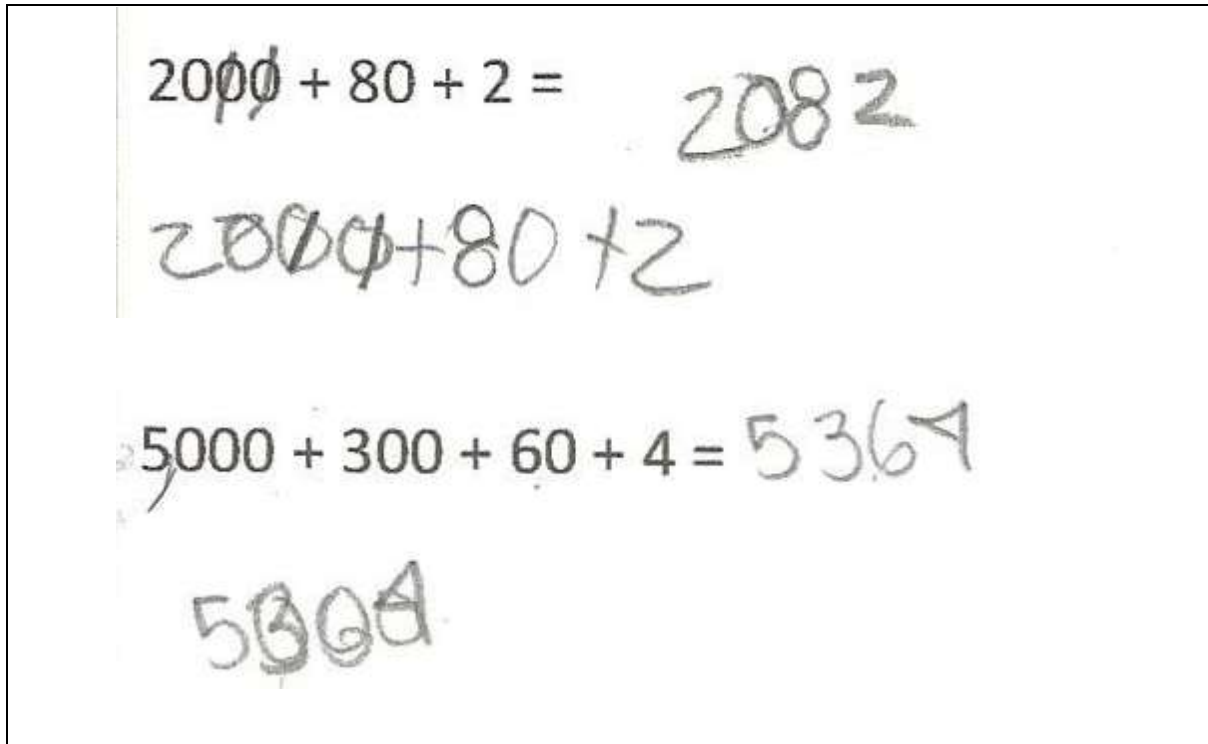 2000 + 80 + 2 = 2082
2000+80+2
5,000 + 300 + 60 + 4 = 5364
5364